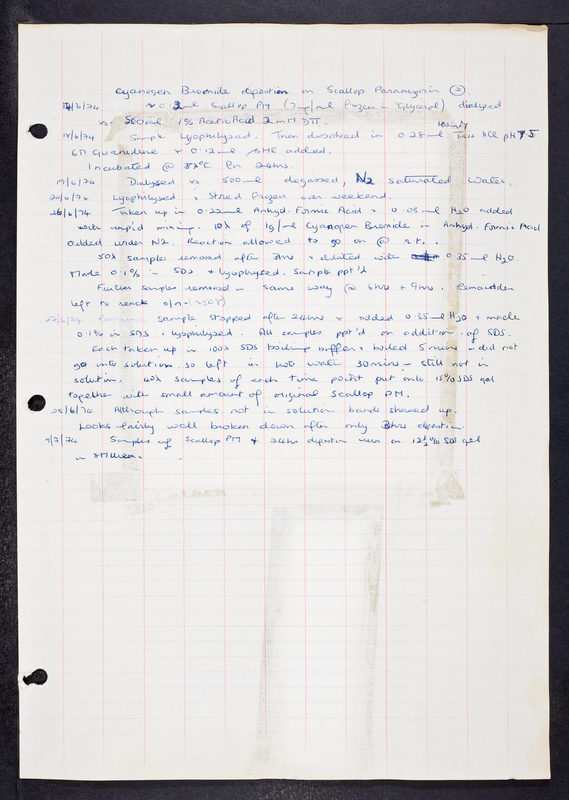 Cyanogen Bromide digestion on Scallop Paramyosin (2)
17/6/74 ~ 0.2ml Scallop PM (7mg/ml frozen in Glycerol) dialysed
vs. 500ml 1% Acetic Acid 2mM DTT.
18/6/74 Sample lyophilysed. Then dissolved in 0.28ml 100mM Tris HCl pH 7.5
6M Guanidine + 0.12ml βME added.
Incubated @ 37°C for 24hrs.
19/6/74 Dialysed vs 500ml degassed, N2 saturated water.
20/6/74 Lyophilysed + Stored frozen over weekend.
26/6/74 Taken up in 0.22ml Anhyd. Formic Acid + 0.05ml H2O added
with rapid mixing. 10λ of 1g/ml Cyanogen Bromide in Anhyd. Formic Acid
added under N2. Reaction allowed to go on @ r.t.
50λ samples removed after 3hrs + diluted with 0.35ml H2O.
Made 0.1% in SDS + lyophysed. Sample ppt'd.
Further samples removed in same way @ 6hrs + 9hrs. Remainder
left to react o/n
27/6/74 sample stopped after 24hrs + added 0.35ml H2O + made
0.1% in SDS + lyophilysed. All samples ppt'd on addition of SDS.
Each taken up in 100λ SDS boiling buffer + boiled 5 mins - did not
go into solution, so left in hot water 30mins - still not in
solution. 40λ samples of each time point put onto 15% SDS gel
together with small amount of original Scallop PM.
28/6/74 Although samples not in solution bands showed up.
Looks fairly well broken down after only 3hrs digestion.
9/7/74 Samples of Scallop PM + 24hrs digestion run on 12½% SDS gel
in 8M urea.